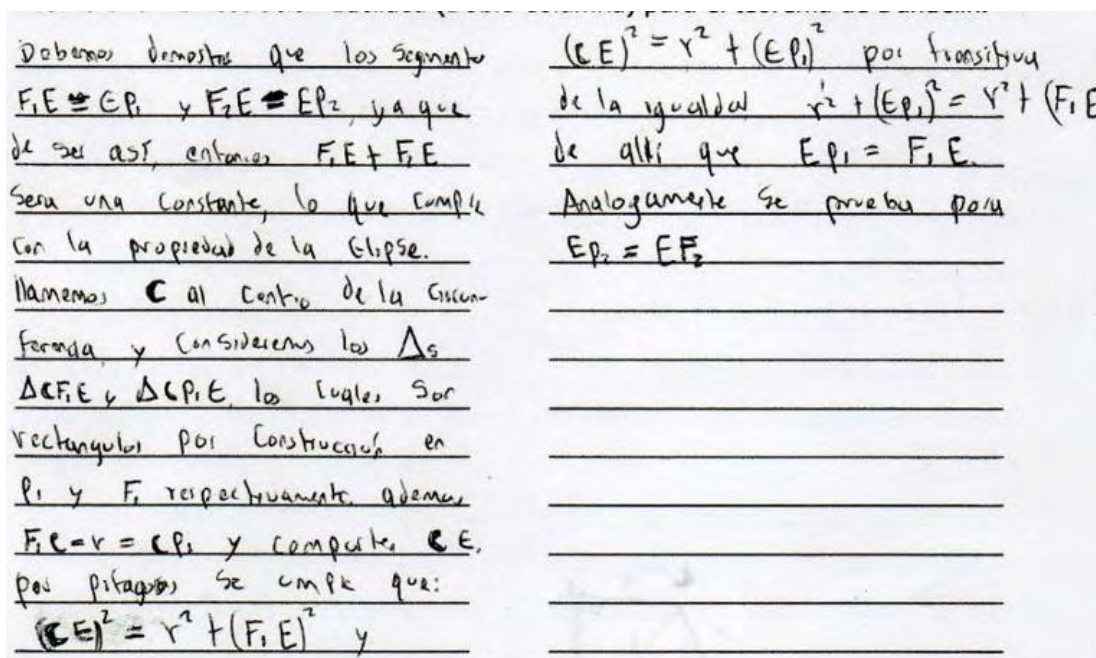 Debemos demostrar que los segmentos
F₁E ≅ EP₁ y F₂E ≅ EP₂, ya que
de ser así, entonces F₁E + F₂E
Sera una Constante, lo que cumple
con la propiedad de la Elipse.
llamemos C al Centro de la Circun-
ferencia, y Consideremos los Δs
ΔCF₁E y ΔCP₁E, los cuales son
rectangulos por Construcción en
P₁ y F₁ respectivamente, ademas
F₁C = r = CP₁ y comparten CE.
por pitagoras se cumple que:
(CE)² = r² + (F₁E)² y
(CE)² = r² + (EP₁)² por transitiva
de la igualdad r² + (EP₁)² = r² + (F₁E
de allí que EP₁ = F₁E.
Analogamente se prueba para
EP₂ = EF₂